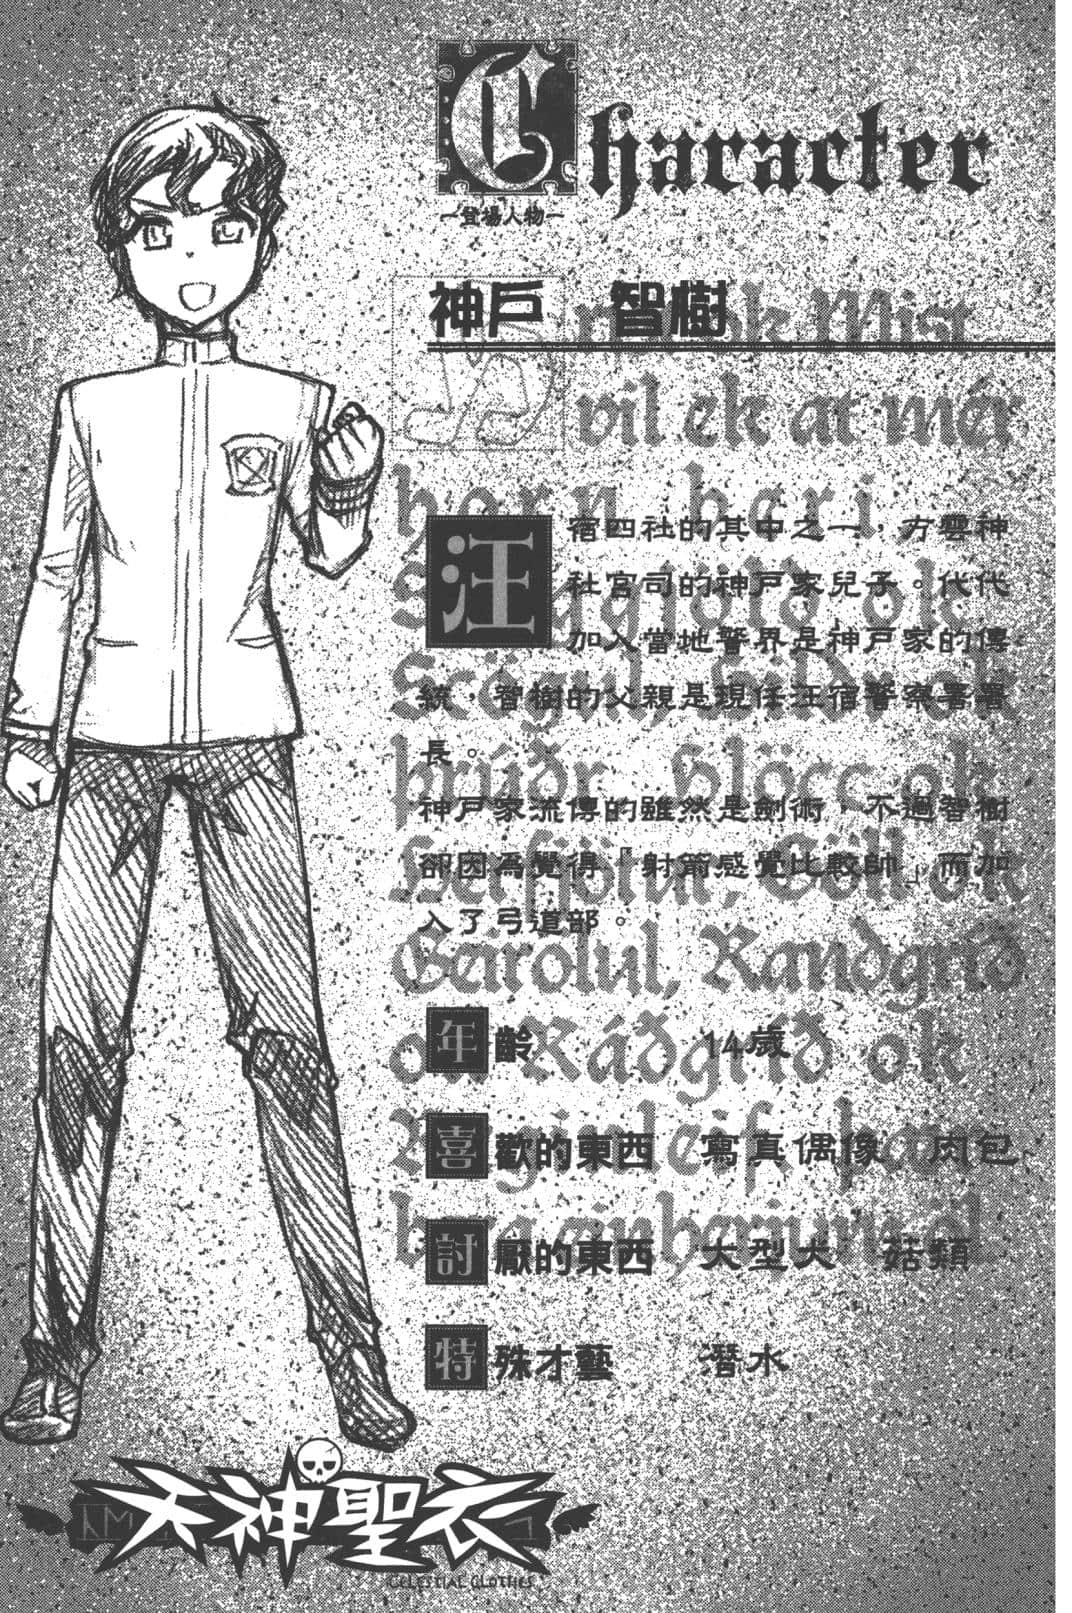 Character
～登場人物～
神戶 智樹
汪宿四社的其中之一，方雲神
社宮司的神戶家兒子。代代
加入當地警界是神戶家的傳
統，智樹的父親是現任汪宿警察署署
長。
神戶家流傳的雖然是劍術，不過智樹
卻因為覺得「射箭感覺比較帥」而加
入了弓道部。
年齡 14歲
喜歡的東西 寫真偶像 肉包
討厭的東西 大型犬 菇類
特殊才藝 潛水
vil ek at mér
horn bera
ok
Geirölul, Randgríð
ok Ráðgríð ok
天神聖衣
CELESTIAL CLOTHES